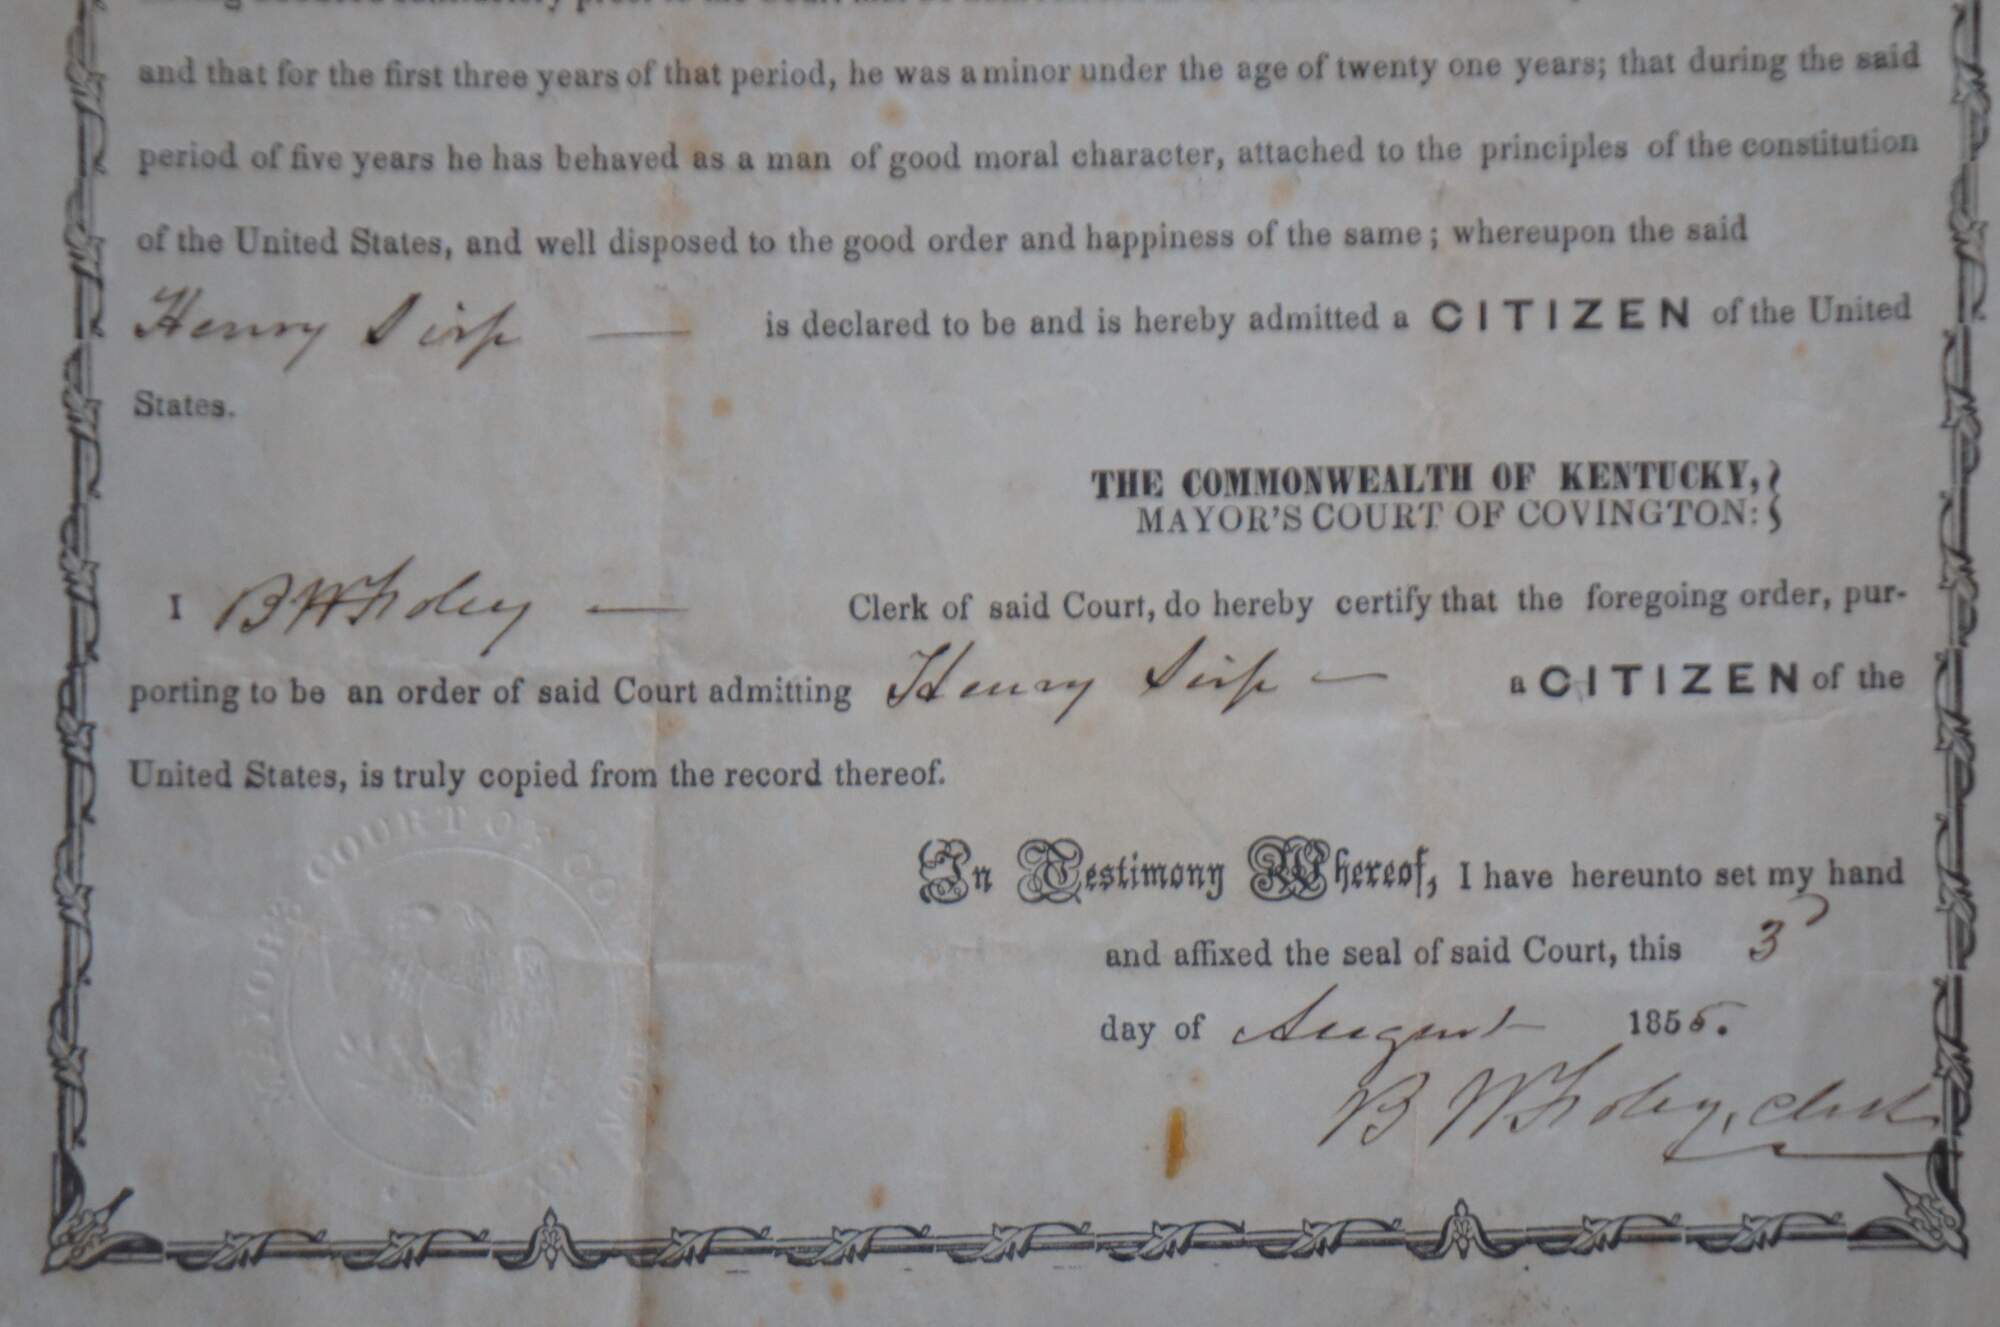 and that for the first three years of that period, he was a minor under the age of twenty one years; that during the said
period of five years he has behaved as a man of good moral character, attached to the principles of the constitution
of the United States, and well disposed to the good order and happiness of the same; whereupon the said
Henry Sirp — is declared to be and is hereby admitted a CITIZEN of the United
States.
THE COMMONWEALTH OF KENTUCKY,
MAYOR'S COURT OF COVINGTON:
I B W Foley — Clerk of said Court, do hereby certify that the foregoing order, pur-
porting to be an order of said Court admitting Henry Sirp — a CITIZEN of the
United States, is truly copied from the record thereof.
MAYORS COURT OF
In Testimony Whereof, I have hereunto set my hand
and affixed the seal of said Court, this 3
day of August 1855.
B W Foley, Clerk